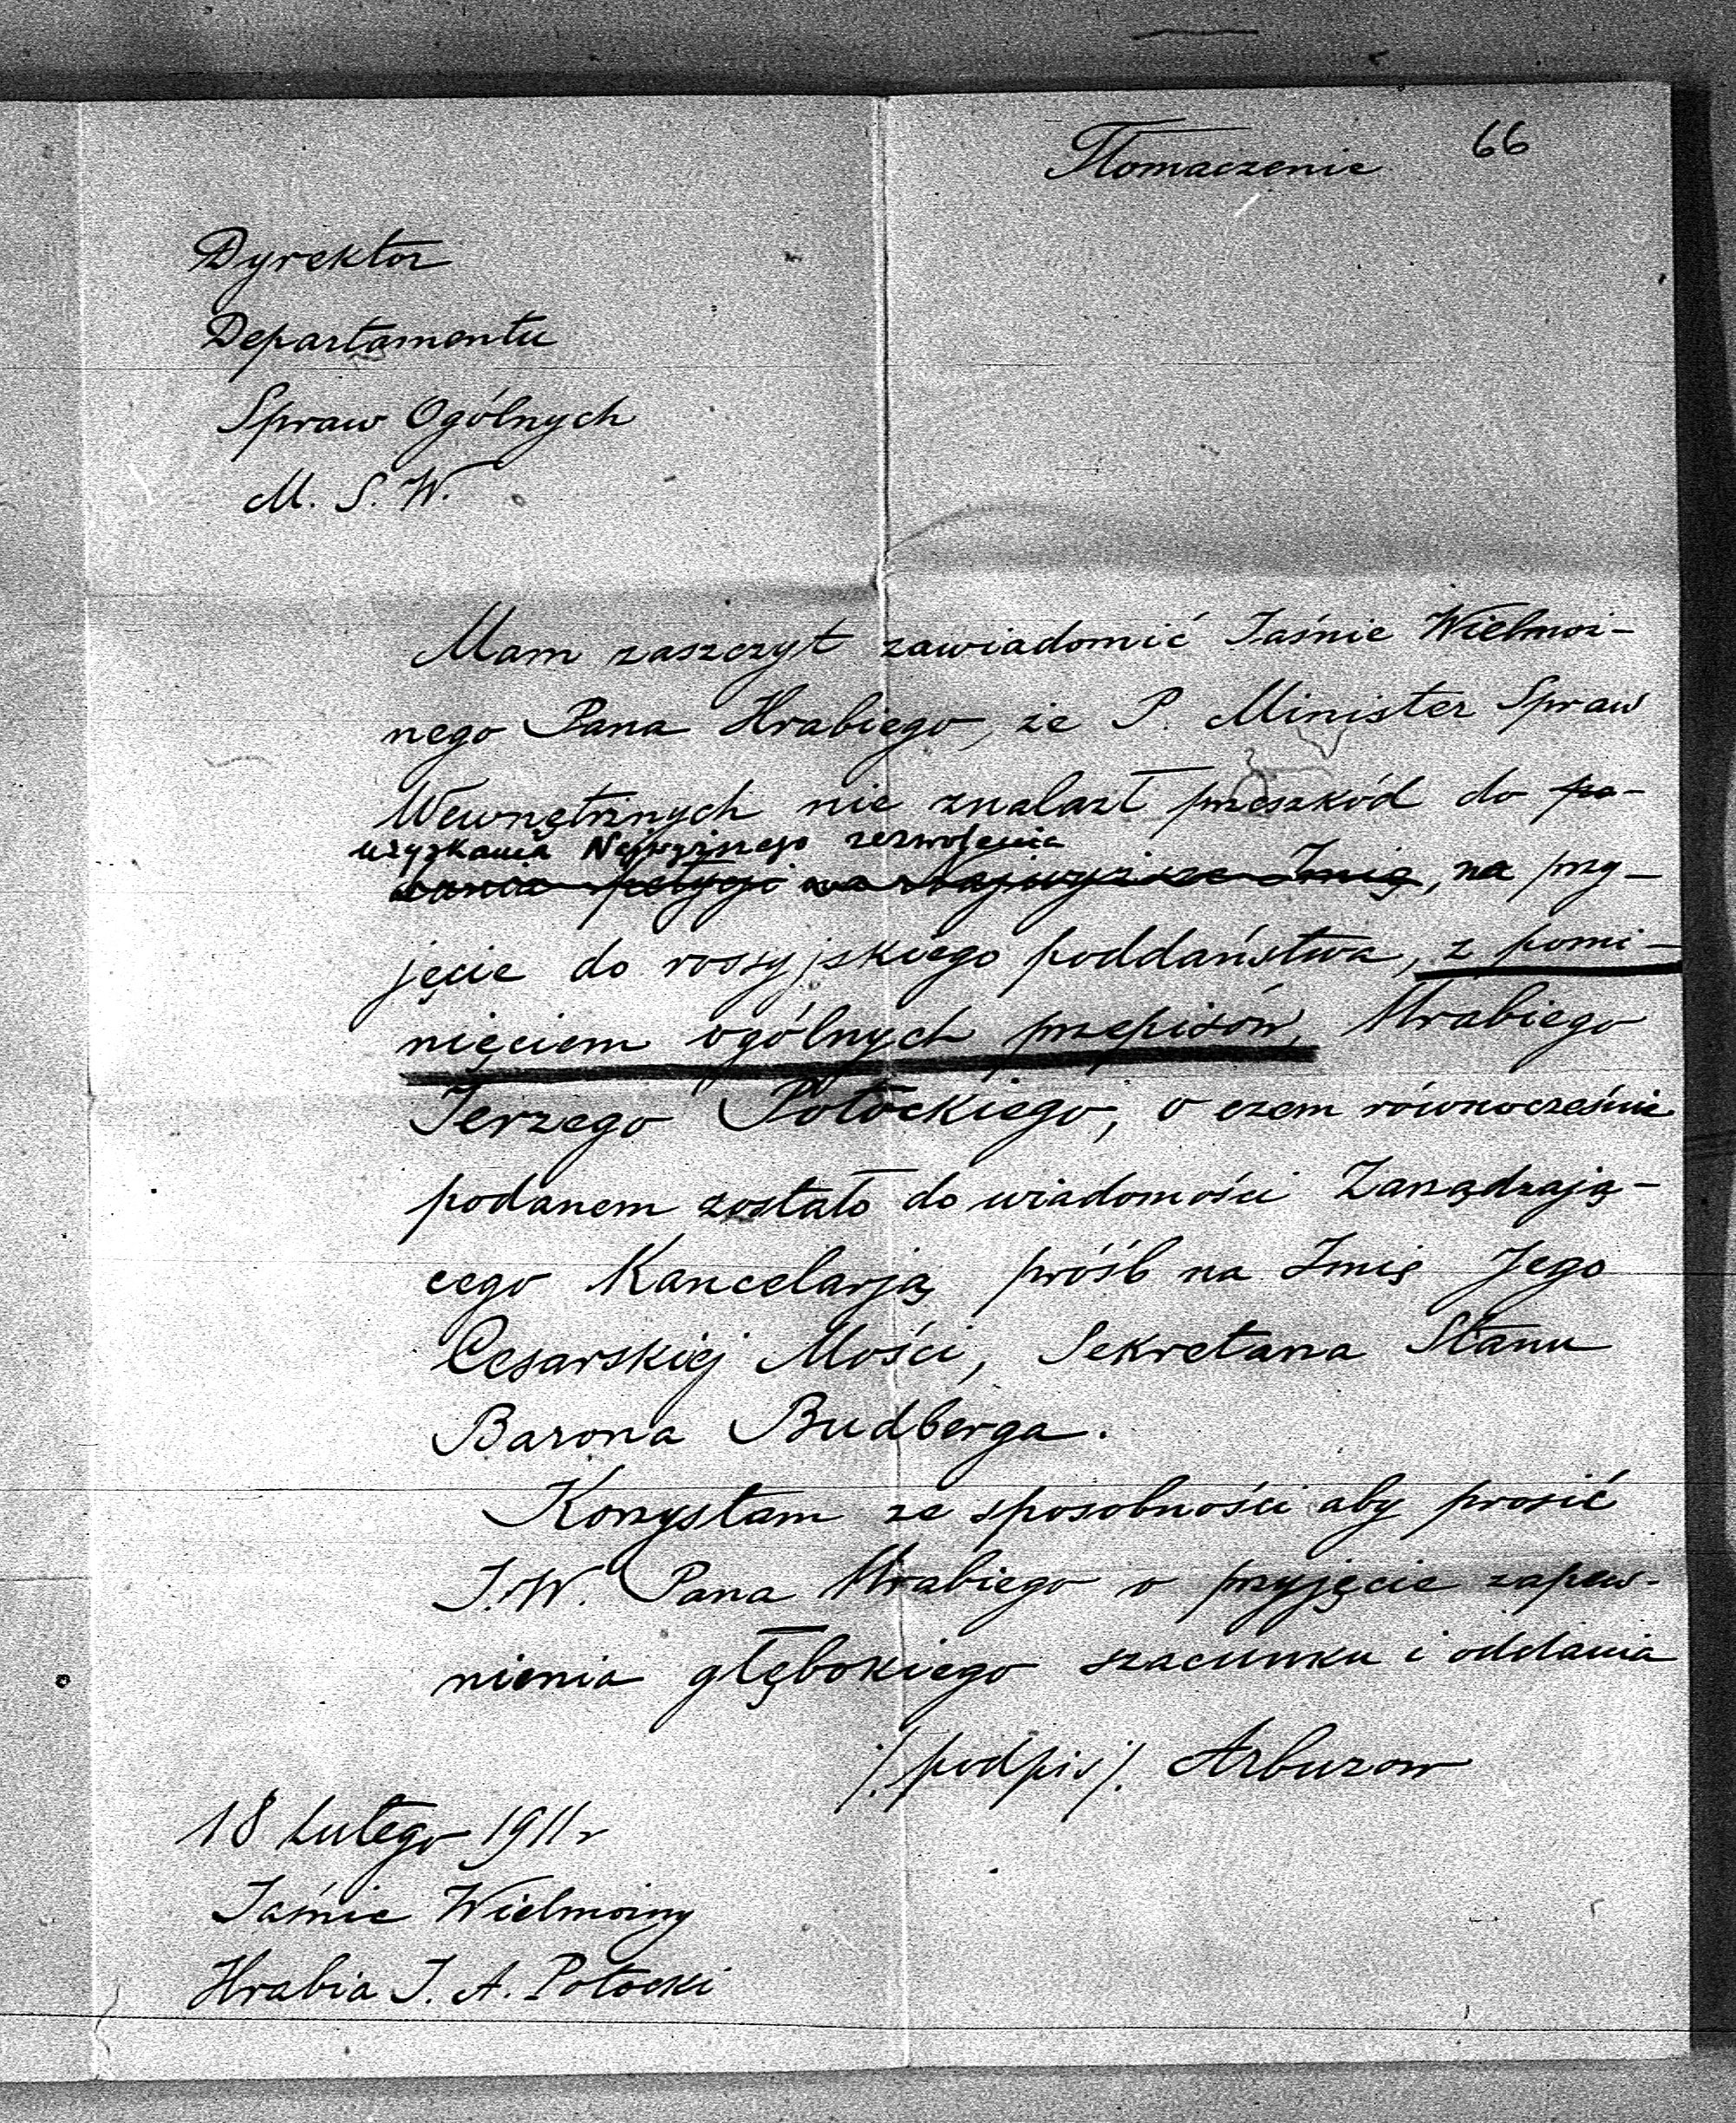 66
Tłomaczenie
Dyrektor
Departamentu
Spraw Ogólnych
M. S. W.
Mam zaszczyt zawiadomić Jaśnie Wielmoż-
nego Pana Hrabiego, że P. Minister Spraw
Wewnętrznych nie znalazł przeszkód do po-
uzyskania Najwyższego zezwolenia
dania petycji na Najwyższe Imię, na przy-
jęcie do rosyjskiego poddaństwa, z pomi-
nięciem ogólnych przepisów, Hrabiego
Jerzego Potockiego, o czem równocześnie
podanem zostało do wiadomości Zarządzają-
cego Kancelarją próśb na Imię Jego
Cesarskiej Mości, Sekretarza Stanu
Barona Budberga.
Korzystam ze sposobności aby prosić
J.W. Pana Hrabiego o przyjęcie zapew-
nienia głębokiego szacunku i oddania
/. podpis /. Arbuzow
18 Lutego 1911 r
Jaśnie Wielmożny
Hrabia J. A. Potocki